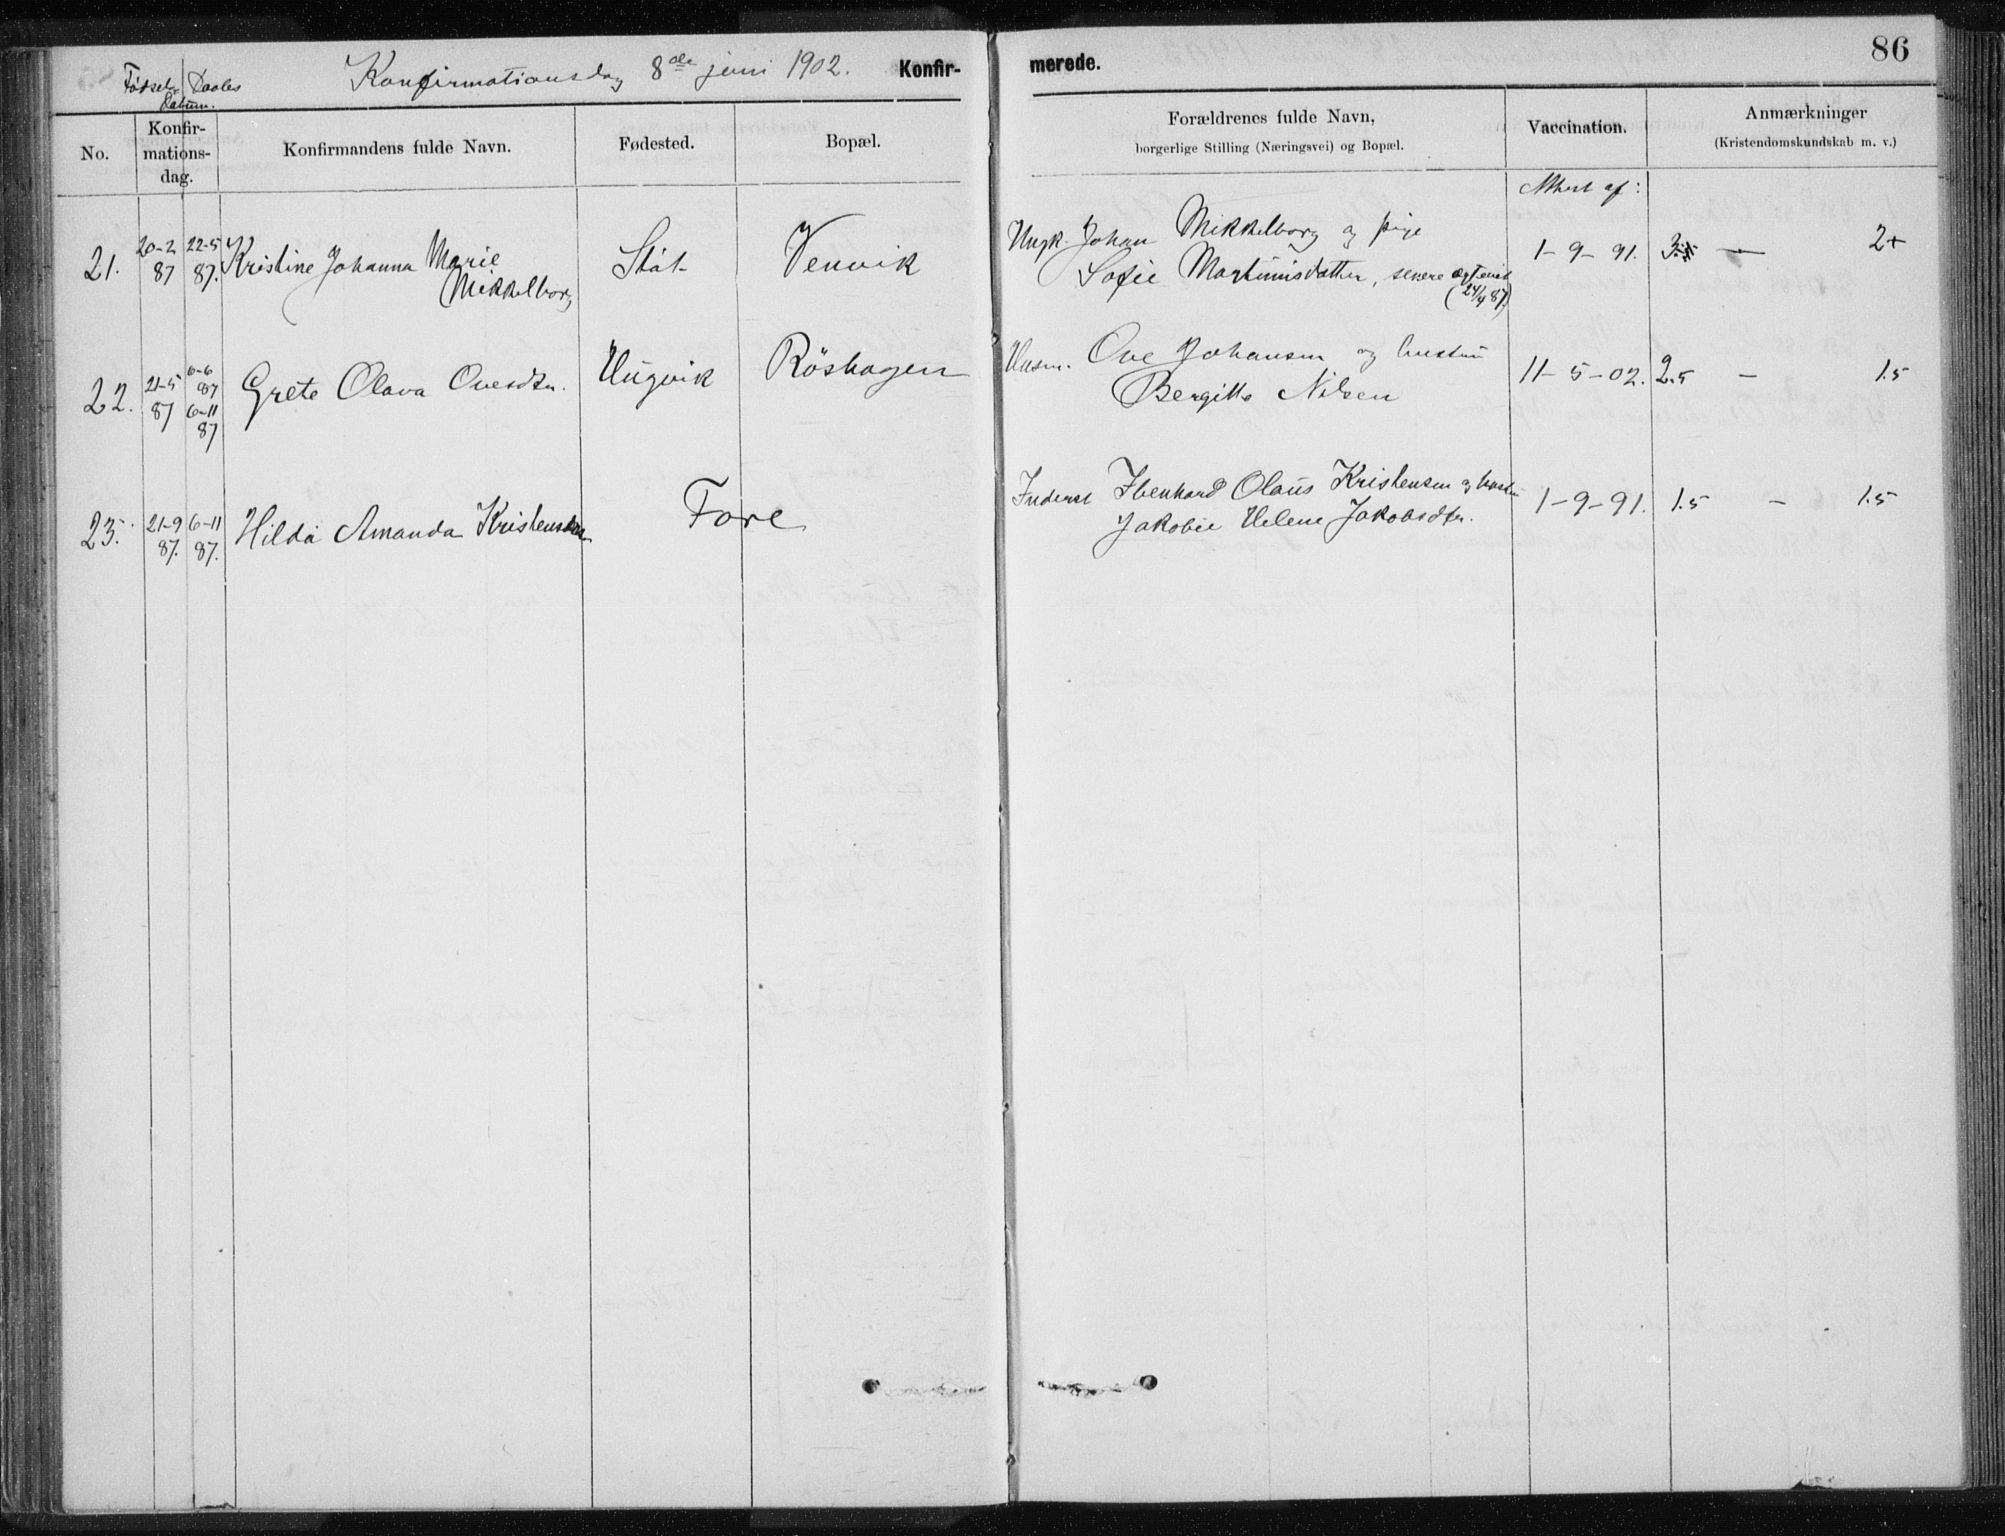 Konfirmationsdag 8de juni 1902. Konfir-
Fødsels Daabs
Datum.
No. Konfir-mations-dag. Konfirmandens fulde Navn. Fødested. Bopæl.
21. 20-2 87 22-5 87. Kristine Johanna Marie Støt Venvik
Mikkelborg
22. 21-5 87 6-6 87 Grete Olava Ovesdtr. Røshagen
6-11 87
23. 21-9 87. 6-11 87. Hilda Amanda Kristensen Fore
merede. 86
Forældrenes fulde Navn, Vaccination. Anmærkninger
borgerlige Stilling (Næringsvei) og Bopæl. (Kristendomskundskab m. v.)
Attest af:
Ungk. Johan Mikkelborg og pige 1-9-91. — 2+
Sofie Martinusdatter, senere ægteviet
(24/4 87)
Husm. Ove Johansen og hustru 11-5-02. 2.5 — 1.5
Bergitte Nilsen
Inderst Ibenhard Olaus Kristensen og hustru 1-9-91. 1.5 — 1.5
Jakobie Helene Jakobsdtr.